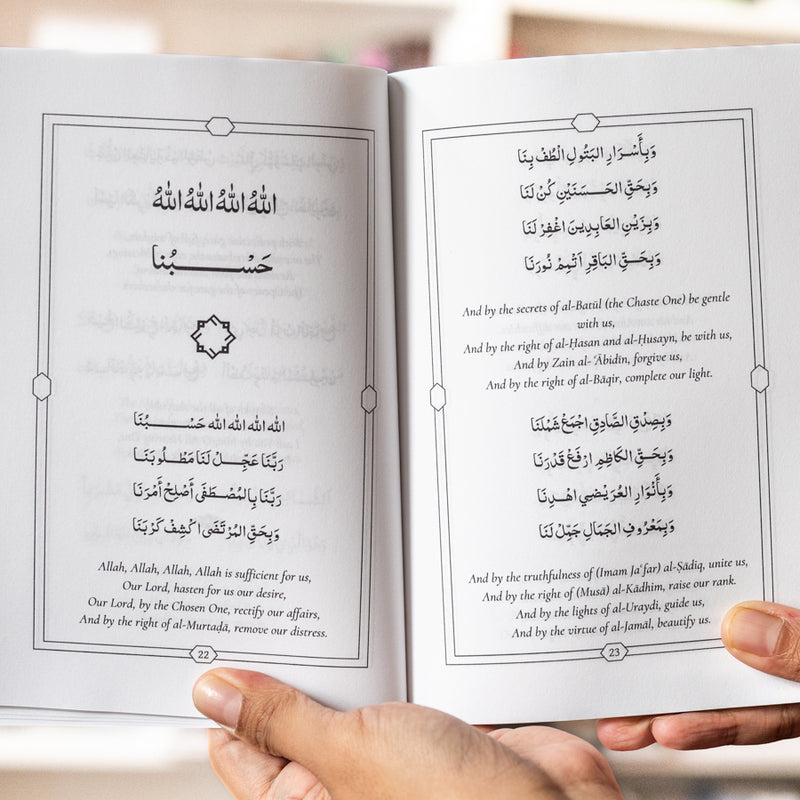 اللهُ اللهُ اللهُ اللهُ
حَسْـــبُنا
الله الله الله الله حَسْـــبُنَا
رَبَّنَا عَجِّلْ لَنَا مَطْلُوبَنَا
رَبَّنَا بِالمُصْطَفَى أَصْلِحْ أَمْرَنَا
وَبِحَقِّ المُرْتَضَى اكْشِفْ كَرْبَنَا
Allah, Allah, Allah, Allah is sufficient for us,
Our Lord, hasten for us our desire,
Our Lord, by the Chosen One, rectify our affairs,
And by the right of al-Murtaḍā, remove our distress.
22
وَبِأَسْرَارِ البَتُولِ الْطُفْ بِنَا
وَبِحَقِّ الحَسَنَيْنِ كُنْ لَنَا
وَبِزَيْنِ العَابِدِينَ اغْفِرْ لَنَا
وَبِحَقِّ البَاقِرِ اَتْمِمْ نُورَنَا
And by the secrets of al-Batūl (the Chaste One) be gentle
with us,
And by the right of al-Ḥasan and al-Ḥusayn, be with us,
And by Zain al-ʿĀbidīn, forgive us,
And by the right of al-Bāqir, complete our light.
وَبِصِدْقِ الصَّادِقِ اجْمَعْ شَمْلَنَا
وَبِحَقِّ الكَاظِمِ ارْفَعْ قَدْرَنَا
وَبِأَنْوَارِ العُرَيْضِي اهْدِنَا
وَبِمَعْرُوفِ الجَمَالِ جَمِّلْ لَنَا
And by the truthfulness of (Imam Jaʿfar) al-Ṣādiq, unite us,
And by the right of (Musā) al-Kādhim, raise our rank.
And by the lights of al-Uraydi, guide us,
And by the virtue of al-Jamāl, beautify us.
23